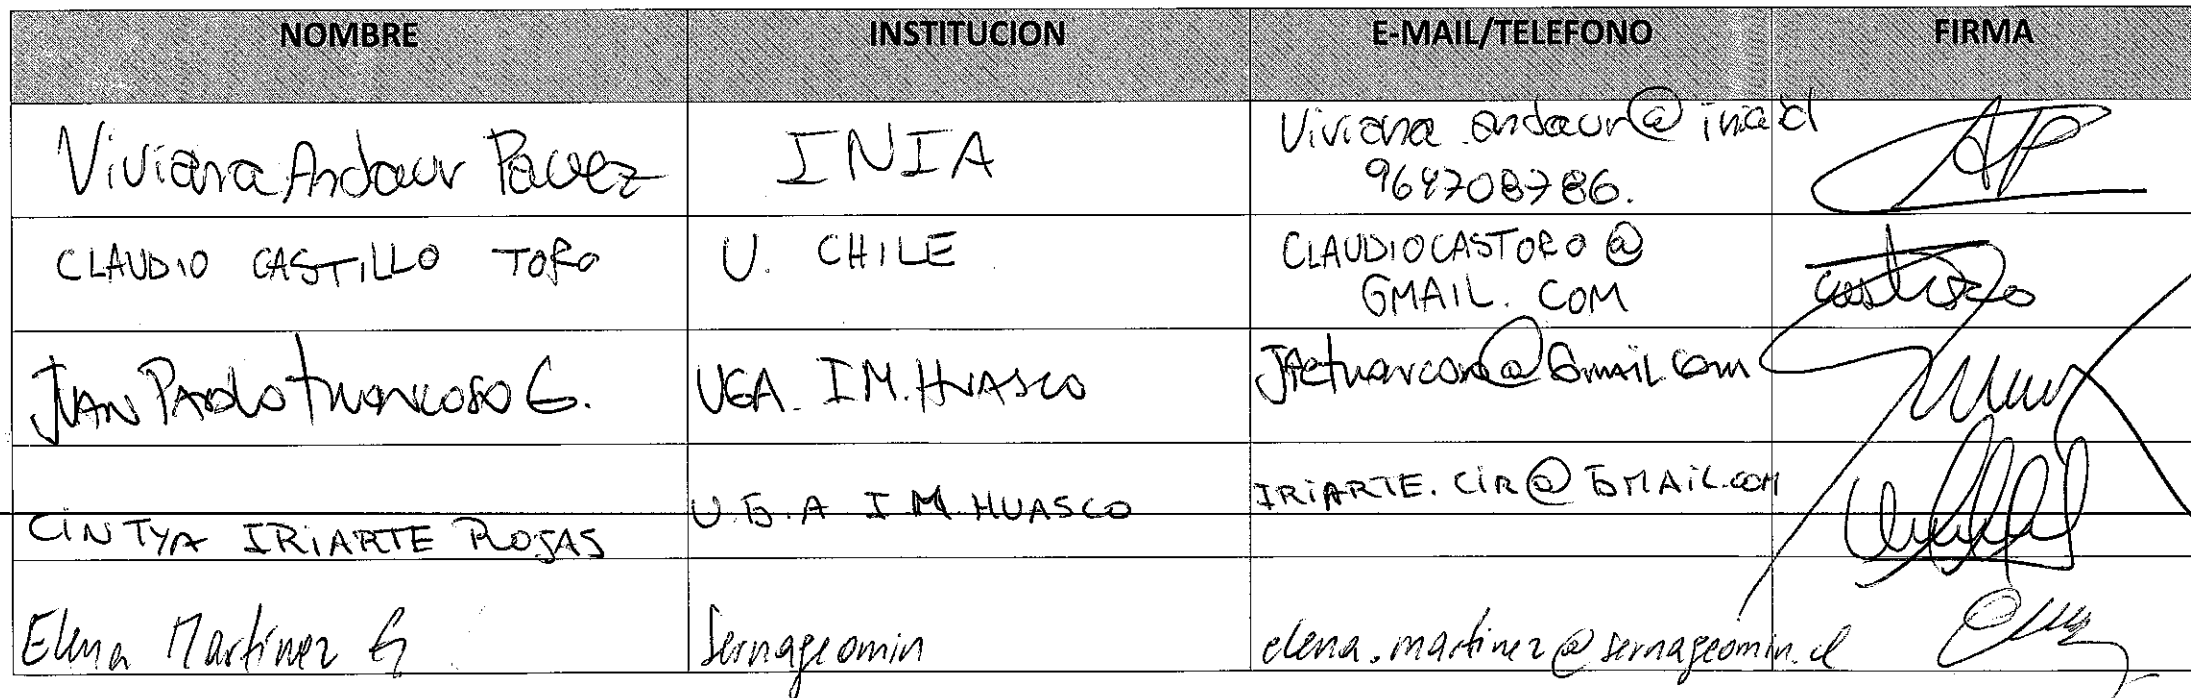 NOMBRE INSTITUCION E-MAIL/TELEFONO FIRMA
Viviana Andaur Pavez INIA Viviana.andaur@inia.cl
964708786.
CLAUDIO CASTILLO TORO U. CHILE CLAUDIOCASTORO@
GMAIL.COM
JUAN PAOLO G. UGA. I.M. HUASCO
CINTYA IRIARTE ROJAS U.G.A I.M. HUASCO IRIARTE.CIR@GMAIL.COM
Elena Martinez G Sernageomin elena.martinez@sernageomin.cl